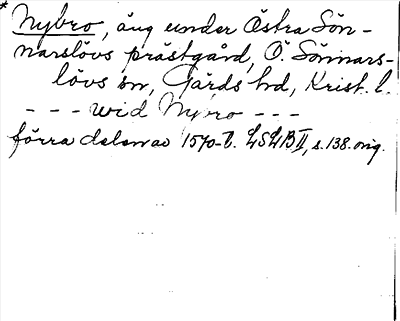 * Nybro, äng under Östra Sön-
narslövs prästgård, Ö. Sönnars-
lövs sn, Gärds hd, Krist. l.
- - - wid Nybro - - -
förra delen av 1570-t. LSLB II, s. 138. orig.